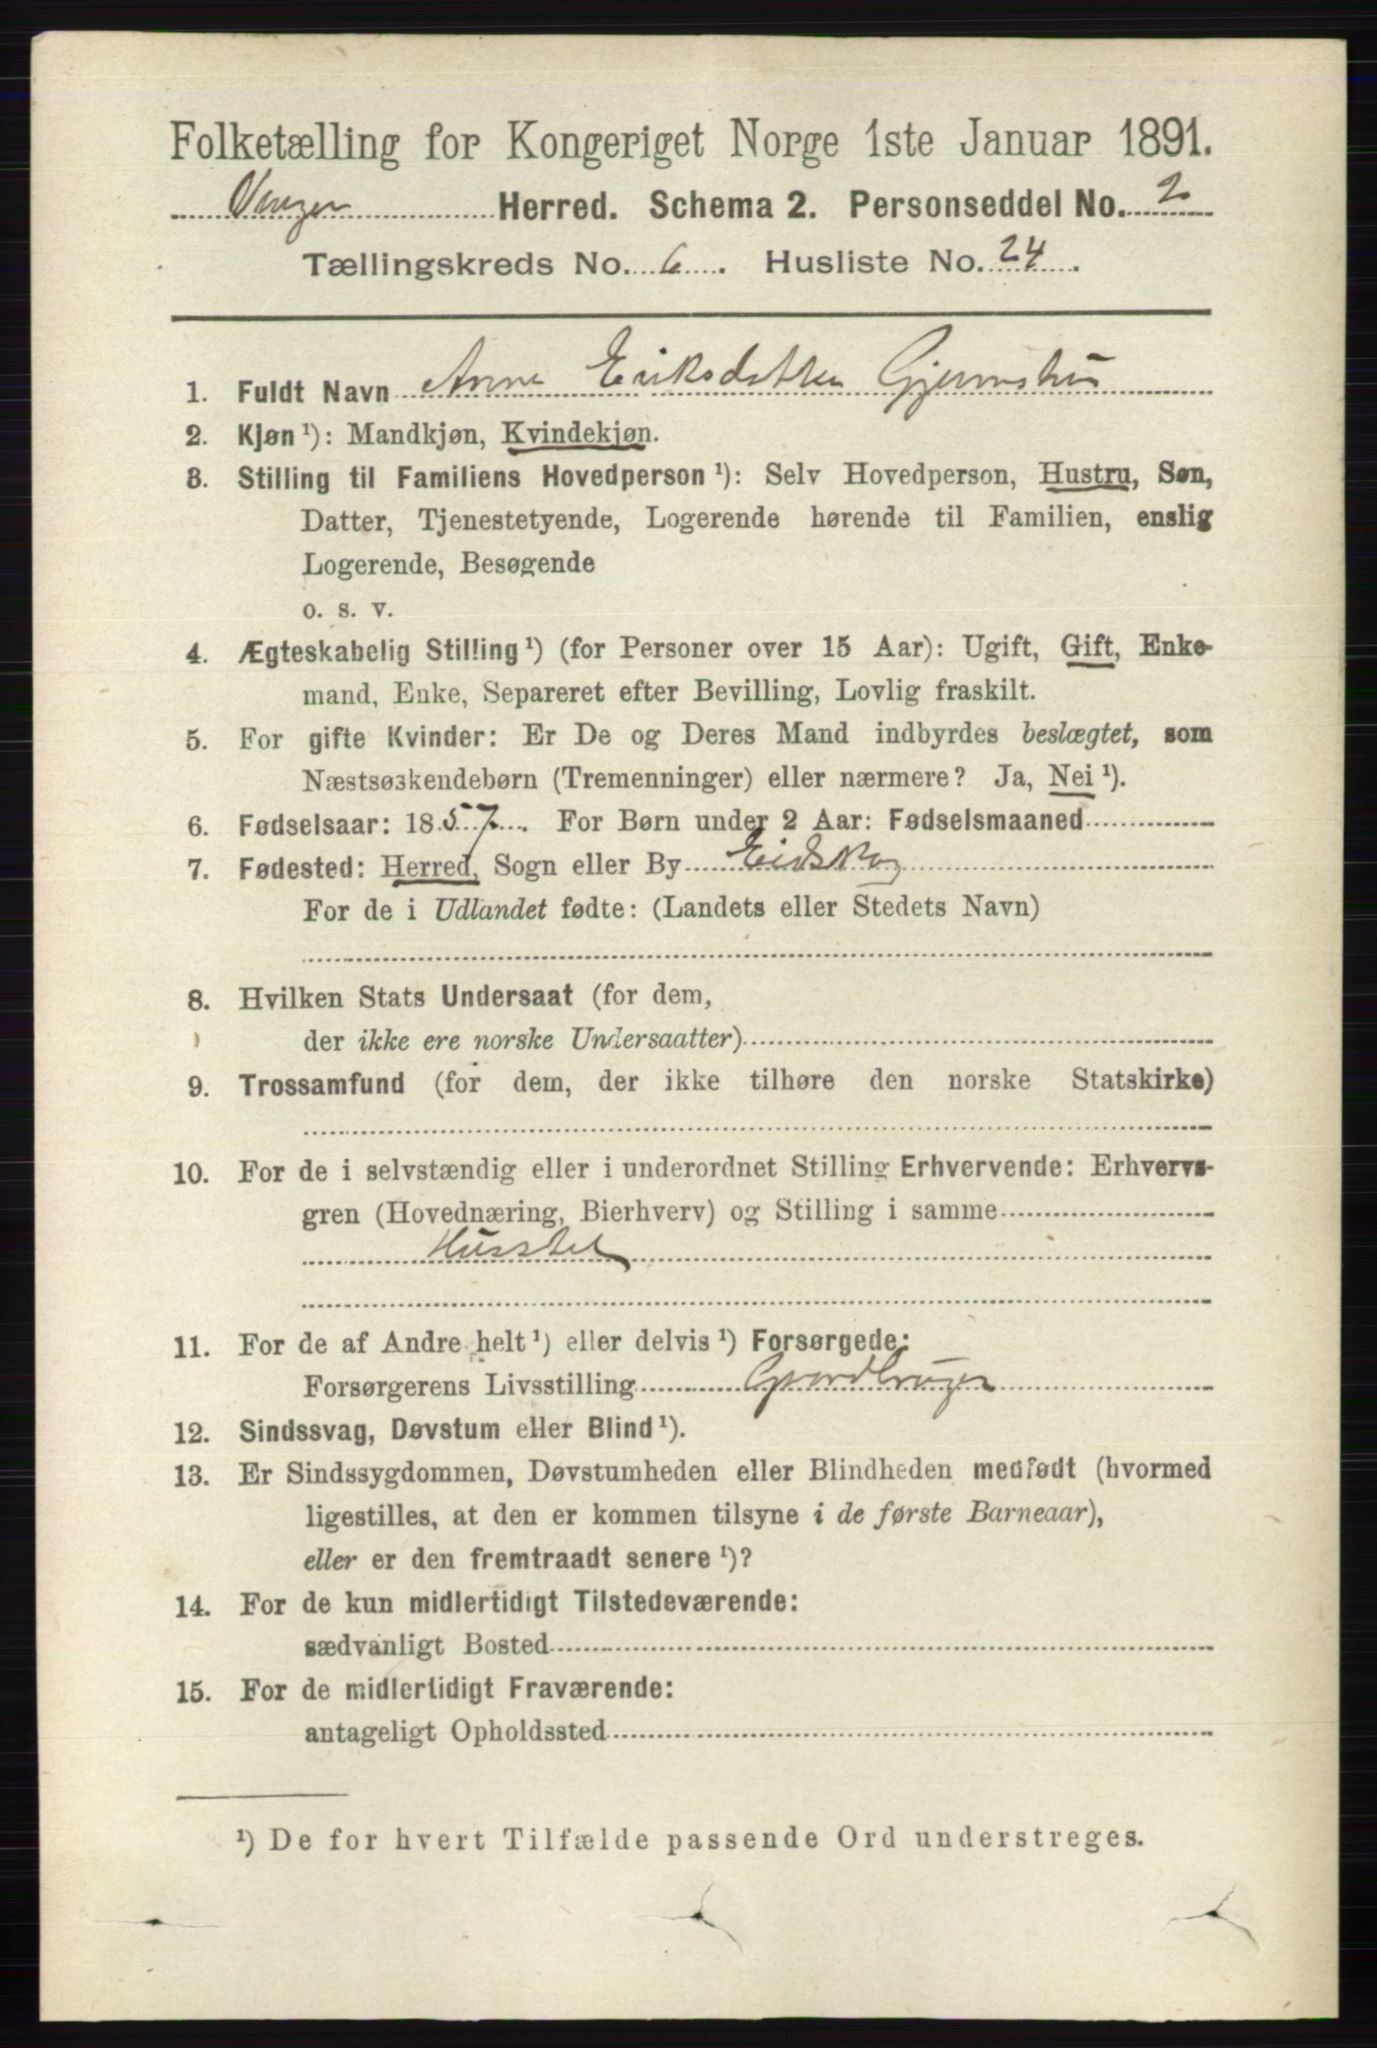 Folketælling for Kongeriget Norge 1ste Januar 1891.
Vinger Herred. Schema 2. Personseddel No. 2
Tællingskreds No. 6. Husliste No. 24.
1. Fuldt Navn Anne Eriksdatter
2. Kjøn ¹): Mandkjøn, Kvindekjøn.
3. Stilling til Familiens Hovedperson ¹): Selv Hovedperson, Hustru, Søn,
Datter, Tjenestetyende, Logerende hørende til Familien, enslig
Logerende, Besøgende
o. s. v.
4. Ægteskabelig Stilling ¹) (for Personer over 15 Aar): Ugift, Gift, Enke-
mand, Enke, Separeret efter Bevilling, Lovlig fraskilt.
5. For gifte Kvinder: Er De og Deres Mand indbyrdes beslægtet, som
Næstsøskendebørn (Tremenninger) eller nærmere? Ja, Nei ¹).
6. Fødselsaar: 1857. For Børn under 2 Aar: Fødselsmaaned
7. Fødested: Herred, Sogn eller By Eidskog
For de i Udlandet fødte: (Landets eller Stedets Navn)
8. Hvilken Stats Undersaat (for dem,
der ikke ere norske Undersaatter)
9. Trossamfund (for dem, der ikke tilhøre den norske Statskirke)
10. For de i selvstændig eller i underordnet Stilling Erhvervende: Erhvervs-
gren (Hovednæring, Bierhverv) og Stilling i samme
Husstel
11. For de af Andre helt ¹) eller delvis ¹) Forsørgede:
Forsørgerens Livsstilling Gaardbruger
12. Sindssvag, Døvstum eller Blind ¹).
13. Er Sindssygdommen, Døvstumheden eller Blindheden medfødt (hvormed
ligestilles, at den er kommen tilsyne i de første Barneaar),
eller er den fremtraadt senere ¹)?
14. For de kun midlertidigt Tilstedeværende:
sædvanligt Bosted
15. For de midlertidigt Fraværende:
antageligt Opholdssted
¹) De for hvert Tilfælde passende Ord understreges.